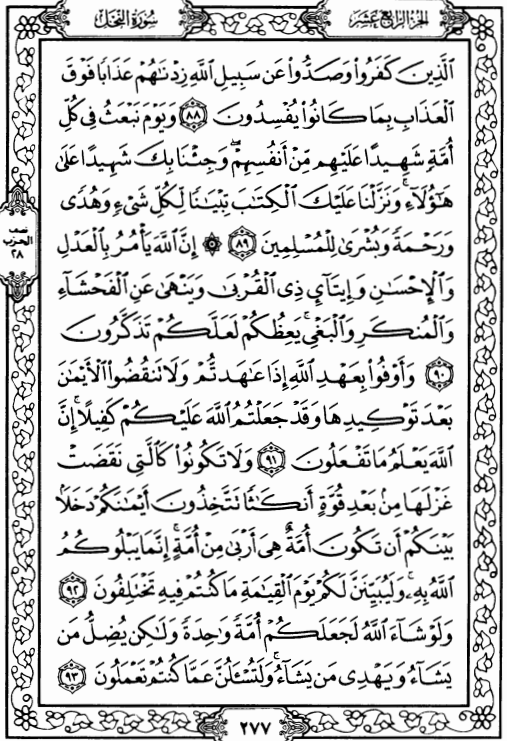 سُورَةُ النَّحْلِ
الجُزْءُ الرَّابِعُ عَشَرَ
الَّذِينَ كَفَرُوا۟ وَصَدُّوا۟ عَن سَبِيلِ اللَّهِ زِدْنَٰهُمْ عَذَابًا فَوْقَ
الْعَذَابِ بِمَا كَانُوا۟ يُفْسِدُونَ ٨٨ وَيَوْمَ نَبْعَثُ فِى كُلِّ
أُمَّةٍ شَهِيدًا عَلَيْهِم مِّنْ أَنفُسِهِمْ ۖ وَجِئْنَا بِكَ شَهِيدًا عَلَىٰ
هَٰٓؤُلَآءِ ۚ وَنَزَّلْنَا عَلَيْكَ الْكِتَٰبَ تِبْيَٰنًا لِّكُلِّ شَىْءٍ وَهُدًى
وَرَحْمَةً وَبُشْرَىٰ لِلْمُسْلِمِينَ ٨٩ ۞ إِنَّ اللَّهَ يَأْمُرُ بِالْعَدْلِ
وَالْإِحْسَٰنِ وَإِيتَآئِ ذِى الْقُرْبَىٰ وَيَنْهَىٰ عَنِ الْفَحْشَآءِ
وَالْمُنكَرِ وَالْبَغْىِ ۚ يَعِظُكُمْ لَعَلَّكُمْ تَذَكَّرُونَ
٩٠ وَأَوْفُوا۟ بِعَهْدِ اللَّهِ إِذَا عَٰهَدتُّمْ وَلَا تَنقُضُوا۟ الْأَيْمَٰنَ
بَعْدَ تَوْكِيدِهَا وَقَدْ جَعَلْتُمُ اللَّهَ عَلَيْكُمْ كَفِيلًا ۚ إِنَّ
اللَّهَ يَعْلَمُ مَا تَفْعَلُونَ ٩١ وَلَا تَكُونُوا۟ كَالَّتِى نَقَضَتْ
غَزْلَهَا مِنۢ بَعْدِ قُوَّةٍ أَنكَٰثًا تَتَّخِذُونَ أَيْمَٰنَكُمْ دَخَلًۢا
بَيْنَكُمْ أَن تَكُونَ أُمَّةٌ هِىَ أَرْبَىٰ مِنْ أُمَّةٍ ۚ إِنَّمَا يَبْلُوكُمُ
اللَّهُ بِهِۦ ۚ وَلَيُبَيِّنَنَّ لَكُمْ يَوْمَ الْقِيَٰمَةِ مَا كُنتُمْ فِيهِ تَخْتَلِفُونَ ٩٢
وَلَوْ شَآءَ اللَّهُ لَجَعَلَكُمْ أُمَّةً وَٰحِدَةً وَلَٰكِن يُضِلُّ مَن
يَشَآءُ وَيَهْدِى مَن يَشَآءُ ۚ وَلَتُسْـَٔلُنَّ عَمَّا كُنتُمْ تَعْمَلُونَ ٩٣
نصف
الحزب
٢٨
٢٧٧